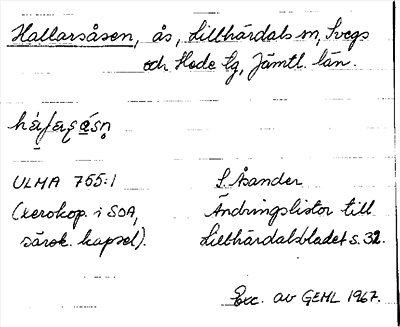 Hallarsåsen, ås, Lillhärdals sn, Svegs
och Hede tg, Jämtl. län.
ULMA 755:1
(xerokop. i SOA,
särsk. kapsel).
S. Åsander
Ändringslistor till
Lillhärdalsbladet s. 32.
Exc. av GEHL 1967.